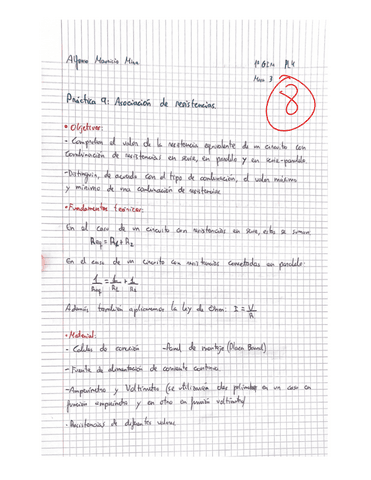 Alfonso Mauricio Mina 1º GIM PL4
Mesa 3
8
Práctica 9: Asociación de resistencias.
• Objetivos:
- Comprobar el valor de la resistencia equivalente de un circuito con
combinación de resistencias en serie, en paralelo y en serie-paralelo
- Distinguir, de acuerdo con el tipo de combinación, el valor máximo
y mínimo de una combinación de resistencias
• Fundamentos teóricos:
En el caso de un circuito con resistencias en serie, estas se suman
Req = R1 + R2
En el caso de un circuito con resistencias conectadas en paralelo:
1/Req = 1/R1 + 1/R2
Además también aplicaremos la ley de Ohm: I = V/R
• Material:
- Cables de conexión - Panel de montaje (Placa Board)
- Fuente de alimentación de corriente continua
- Amperímetro y Voltímetro (se utilizarán dos polímetros en un caso en
función amperímetro y en otro en función voltímetro)
- Resistencias de diferentes valores